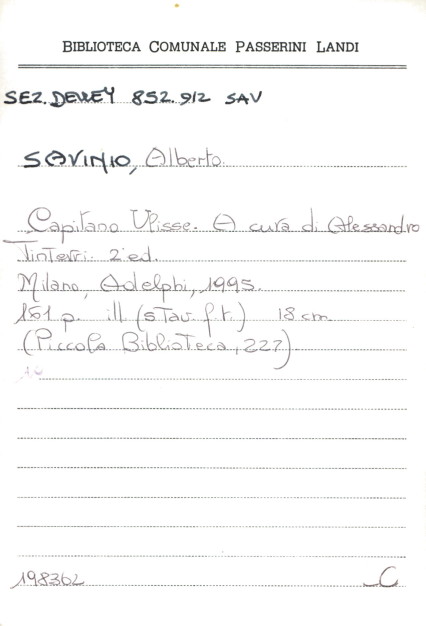 BIBLIOTECA COMUNALE PASSERINI LANDI
SEZ. DEWEY 852.912 SAV
SAVINIO, Alberto
Capitano Ulisse. A cura di Alessandro
Tinterri. 2ª ed.
Milano, Adelphi, 1995.
161 p. ill (5 tav. f.t.) 18 cm.
(Piccola Biblioteca, 227)
198362 C